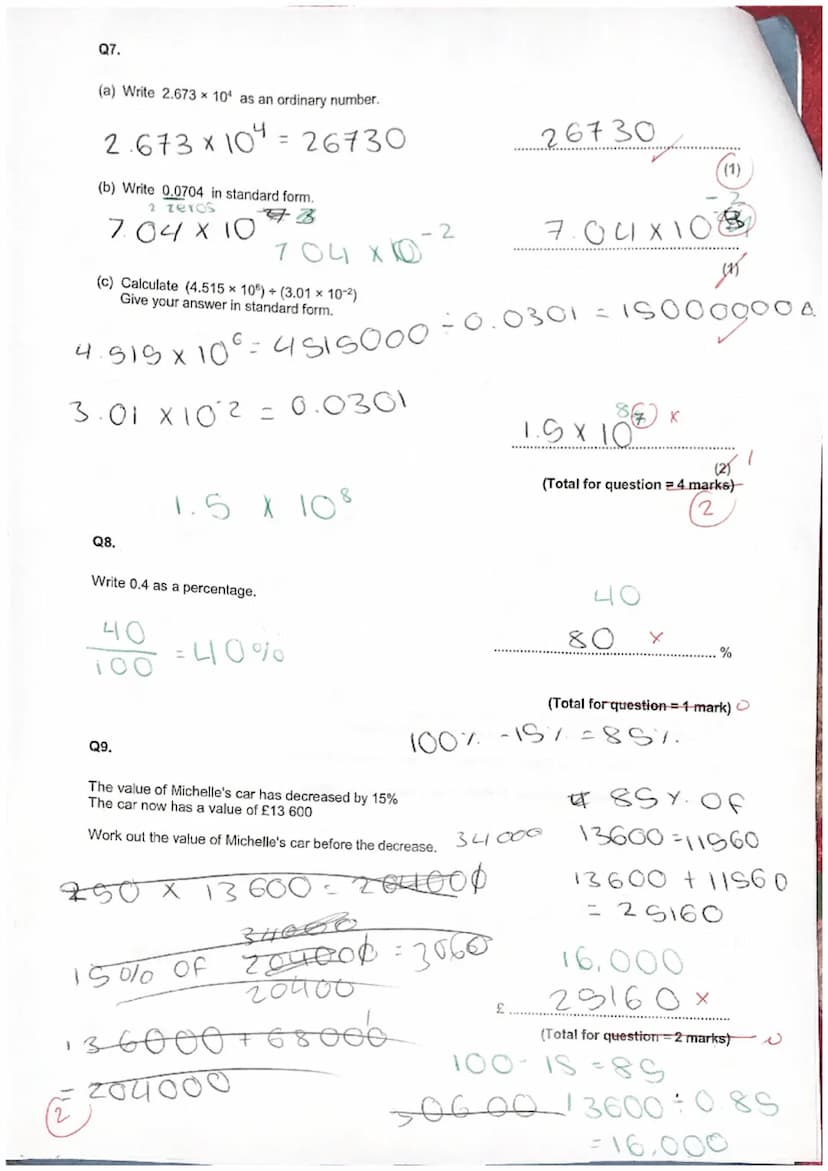 Q7.
(a) Write 2.673 × 10⁴ as an ordinary number.
2.673 × 10⁴ = 26730
26730
(1)
(b) Write 0.0704 in standard form.
2 zeros
7.04 × 10
7.04 × 10⁻²
-2
7.04 × 10
(1)
(c) Calculate (4.515 × 10⁶) ÷ (3.01 × 10⁻²)
Give your answer in standard form.
4.515 × 10⁶ = 4515000 ÷ 0.0301 = 150000000
3.01 × 10⁻² = 0.0301
8
1.5 × 10⁷ ×
(2) 1
(Total for question = 4 marks)
2
1.5 × 10⁸
Q8.
Write 0.4 as a percentage.
40
40/100 = 40%
80 × %
(Total for question = 1 mark) 0
100% - 15% = 85%.
Q9.
The value of Michelle's car has decreased by 15%
The car now has a value of £13 600
Work out the value of Michelle's car before the decrease.
34000
85% OF
13600 = 11560
13600 + 11560
= 25160
250 × 13600 = 204000
34000
15% OF 204000 = 3060
20400
136000 + 68000
= 204000
16,000
£ 25160 ×
(Total for question = 2 marks) 0
100 - 15 = 85
30600 13600 ÷ 0.85
= 16,000
2